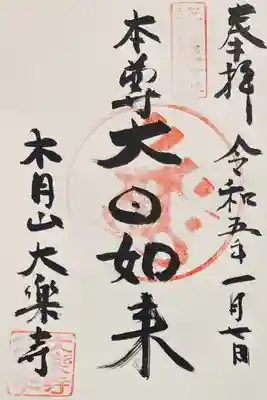 奉拝
令和五年一月七日
本尊大日如来
木月山大樂寺